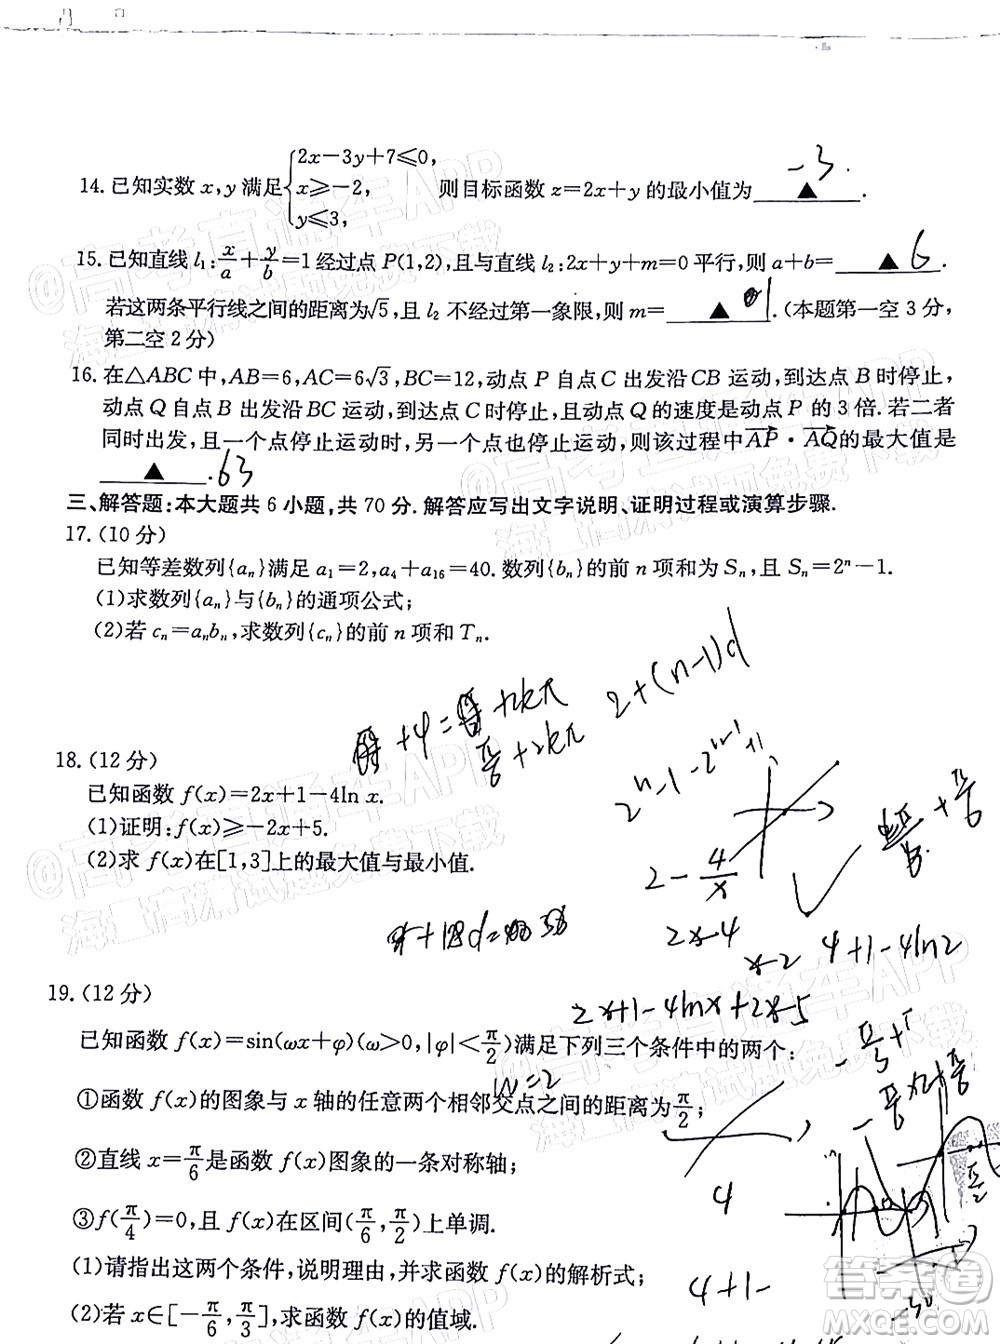 14. 已知实数 x, y 满足 {2x-3y+7≤0, x≥-2, y≤3, 则目标函数 z=2x+y 的最小值为 ▲ . -3.
15. 已知直线 l₁: x/a + y/b =1 经过点 P(1,2), 且与直线 l₂: 2x+y+m=0 平行, 则 a+b= ▲ . 6
若这两条平行线之间的距离为√5, 且 l₂ 不经过第一象限, 则 m= ▲ . (本题第一空 3 分,
第二空 2 分)
16. 在△ABC 中, AB=6, AC=6√3, BC=12, 动点 P 自点 C 出发沿 CB 运动, 到达点 B 时停止,
动点 Q 自点 B 出发沿 BC 运动, 到达点 C 时停止, 且动点 Q 的速度是动点 P 的 3 倍. 若二者
同时出发, 且一个点停止运动时, 另一个点也停止运动, 则该过程中 AP→ · AQ→ 的最大值是
▲ . 63
三、解答题: 本大题共 6 小题, 共 70 分. 解答应写出文字说明、证明过程或演算步骤.
17. (10 分)
已知等差数列{aₙ}满足 a₁=2, a₄+a₁₆=40. 数列{bₙ}的前 n 项和为 Sₙ, 且 Sₙ=2ⁿ-1.
(1)求数列{aₙ}与{bₙ}的通项公式;
(2)若 cₙ=aₙbₙ, 求数列{cₙ}的前 n 项和 Tₙ.
2+(n-1)d
+φ= +2kπ
π/6 +2kπ
18. (12 分)
已知函数 f(x)=2x+1-4ln x.
(1)证明: f(x)≥-2x+5.
(2)求 f(x)在[1,3]上的最大值与最小值.
2 - 4/x
2x-4
x-2
4+1-4ln2
19. (12 分)
2x+1-4lnx+2x-5
已知函数 f(x)=sin(ωx+φ)(ω>0, |φ|<π/2)满足下列三个条件中的两个:
w=2
①函数 f(x)的图象与 x 轴的任意两个相邻交点之间的距离为 π/2;
②直线 x=π/6 是函数 f(x)图象的一条对称轴;
③f(π/4)=0, 且 f(x)在区间(π/6, π/2)上单调.
4
(1)请指出这两个条件, 并求函数 f(x)的解析式;
4+1-
(2)若 x∈[-π/6, π/3], 求函数 f(x)的值域.
答案圈
MXQE.COM
@高考直通车APP